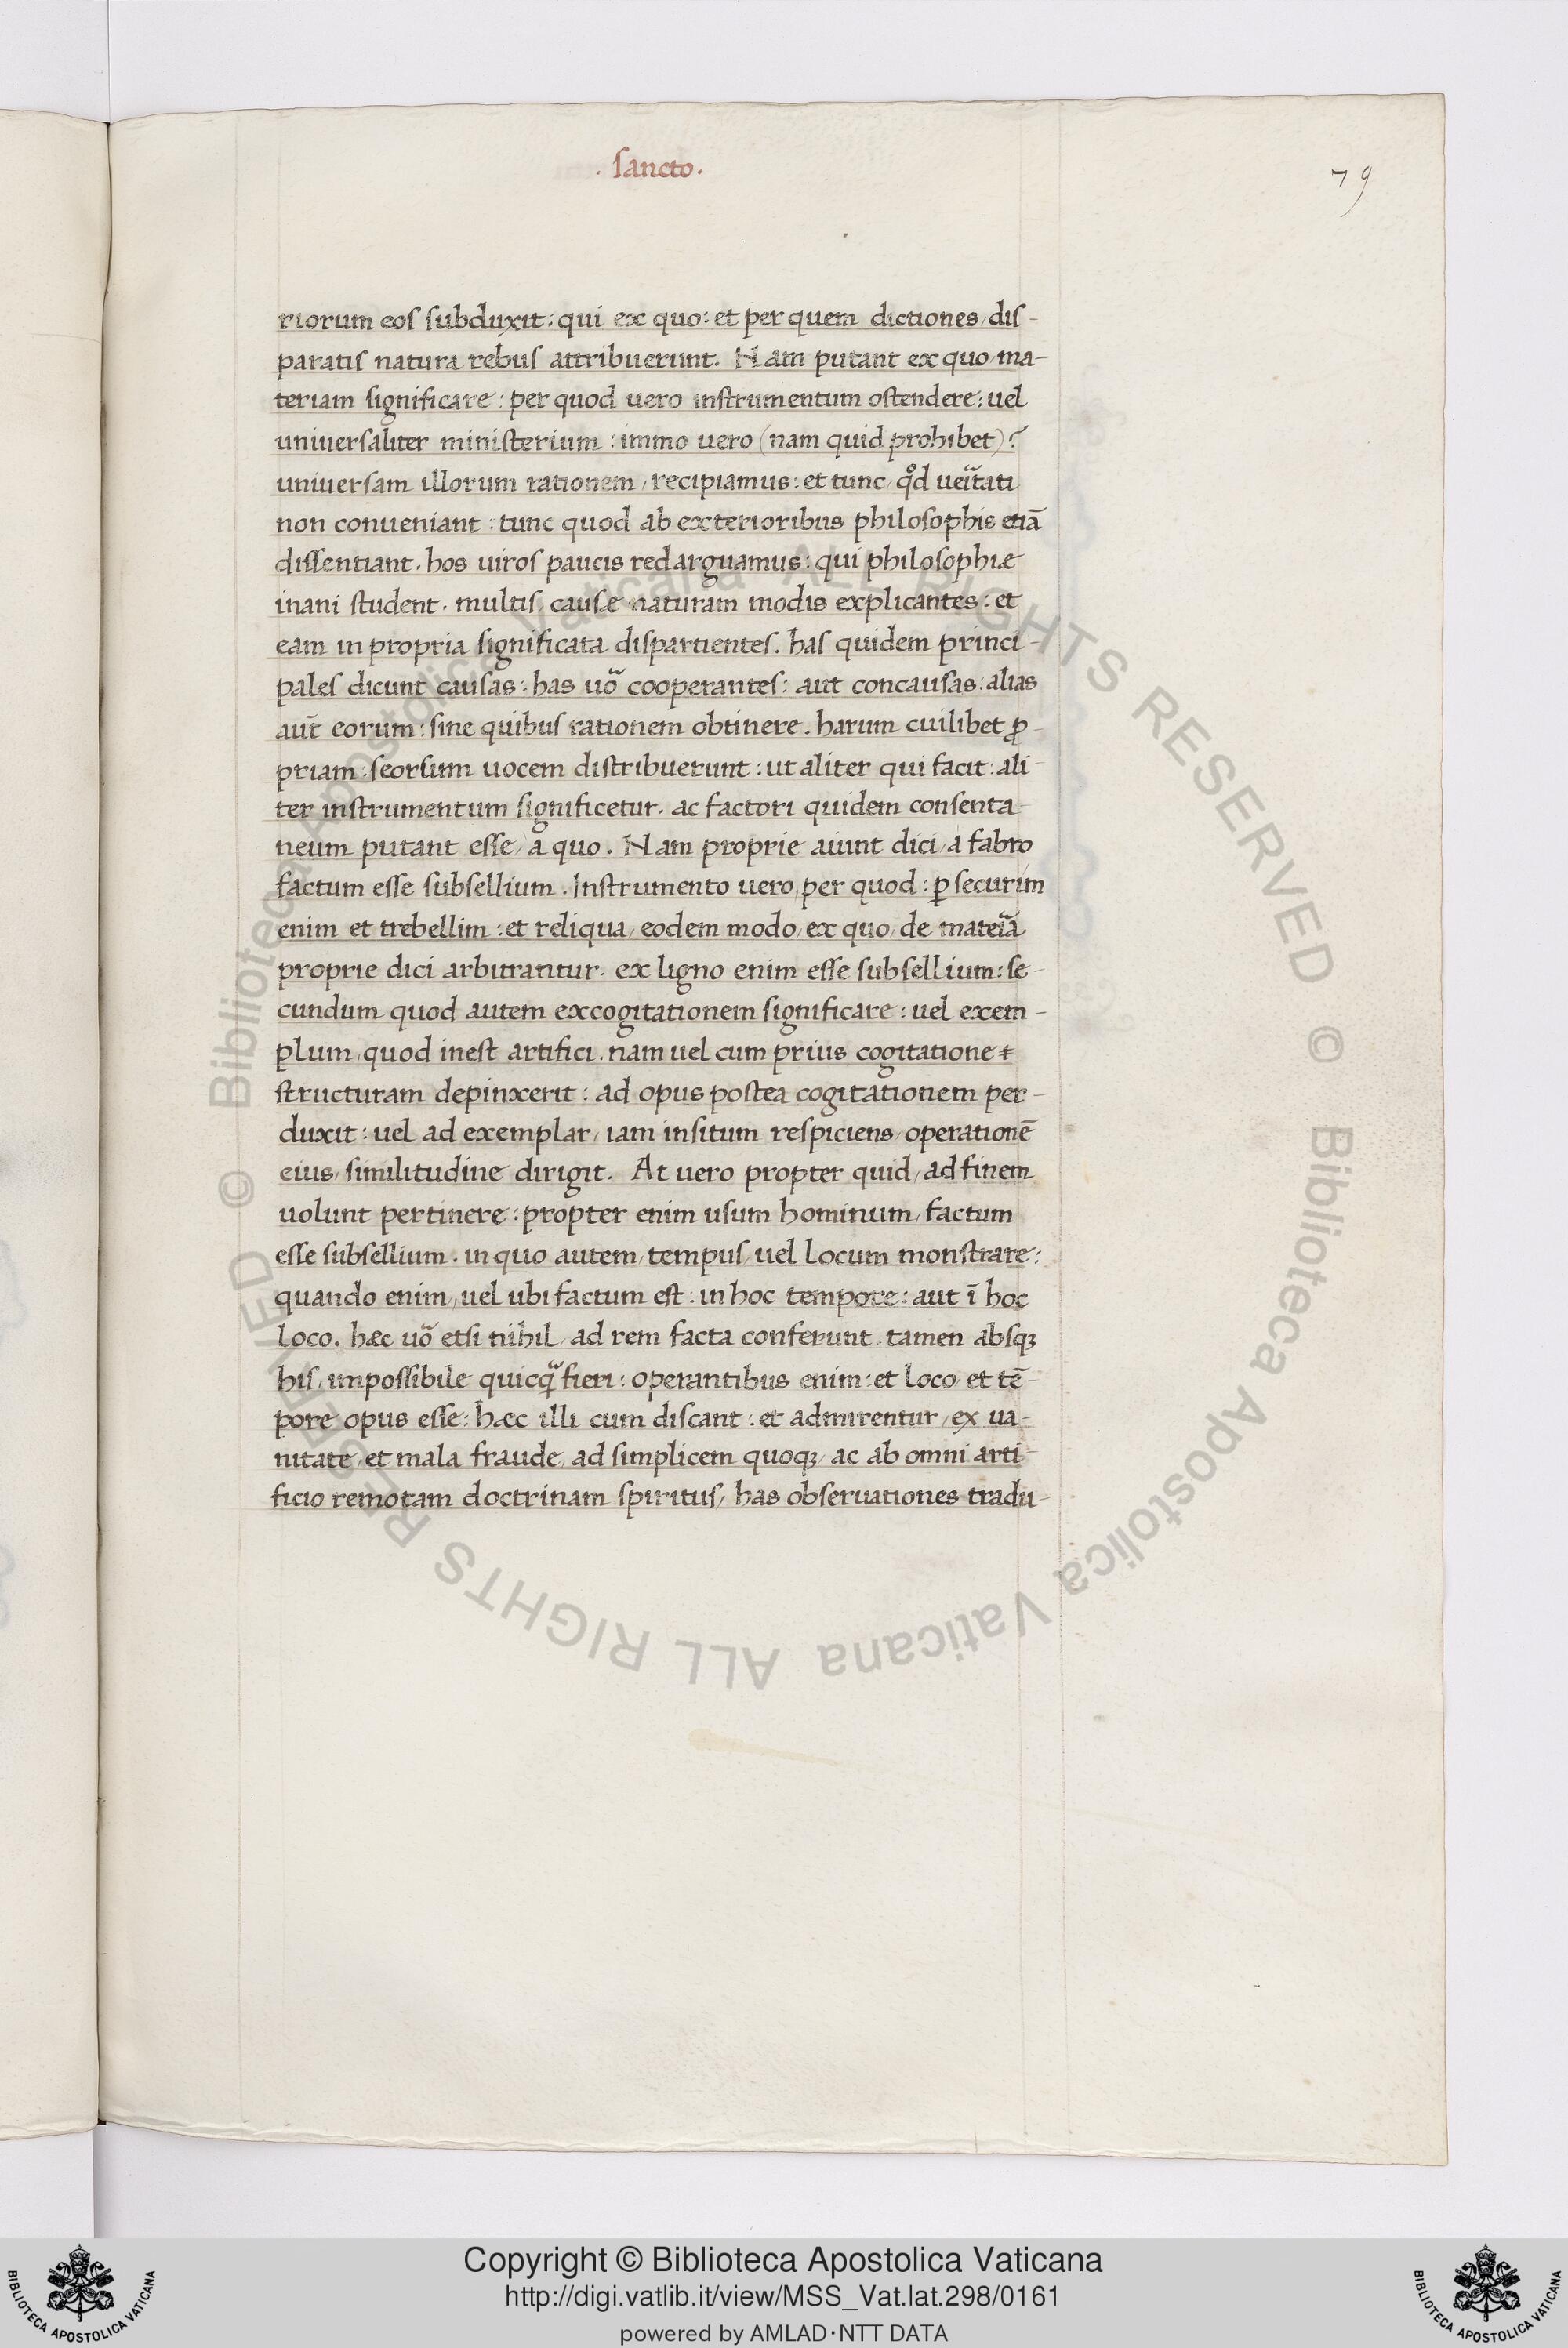 . sancto .
79
riorum eos subduxit : qui ex quo : et per quem dictiones / dis-
paratis natura rebus attribuerunt . Nam putant ex quo / ma-
teriam significare : per quod uero instrumentum ostendere : uel
uniuersaliter ministerium : immo uero (nam quid prohibet)?
uniuersam illorum rationem / recipiamus : et tunc / qͦd ueiᷓtati
non conueniant : tunc quod ab exterioribus philosophis etiā
dissentiant . hos uiros paucis redarguamus : qui philosophiæ
inani student . multis / causæ naturam modis explicantes : et
eam in propria significata dispartientes . has quidem princi-
pales dicunt causas : has uoᷓ cooperantes : aut concausas : alias
aūt eorum : sine quibus rationem obtinere . harum cuilibet ꝓ-
priam : seorsum uocem distribuerunt : ut aliter qui facit : ali-
ter instrumentum significetur . ac factori quidem consenta-
neum putant esse / a quo . Nam proprie aiunt dici / a fabro
factum esse subsellium . Instrumento uero / per quod : ꝑ securim
enim et trebellim : et reliqua / eodem modo / ex quo / de mateiᷓa
proprie dici arbitrantur . ex ligno enim esse subsellium : se-
cundum quod autem excogitationem significare : uel exem-
plum / quod inest artifici . nam uel cum prius cogitatione
structuram depinxerit : ad opus postea cogitationem per-
duxit : uel ad exemplar / iam insitum respiciens / operationē
eius / similitudine dirigit . At uero propter quid / ad finem
uolunt pertinere : propter enim usum hominum / factum
esse subsellium . in quo autem / tempus / uel locum monstrare :
quando enim / uel ubi factum est : in hoc tempore : aut ī hoc
loco . hæc uoᷓ etsi nihil / ad rem facta conferunt . tamen absqꝫ
his / impossibile quicqᷓ fieri : operantibus enim : et loco et tē-
pore opus esse : hæc illi cum discant : et admirentur / ex ua-
nitate / et mala fraude / ad simplicem quoqꝫ / ac ab omni arti-
ficio remotam doctrinam spiritus / has obseruationes tradu-
© Biblioteca Apostolica Vaticana ALL RIGHTS RESERVED © Biblioteca Apostolica Vaticana ALL RIGHTS RESERVED
Copyright © Biblioteca Apostolica Vaticana
http://digi.vatlib.it/view/MSS_Vat.lat.298/0161
powered by AMLAD·NTT DATA
BIBLIOTECA APOSTOLICA VATICANA
BIBLIOTECA APOSTOLICA VATICANA